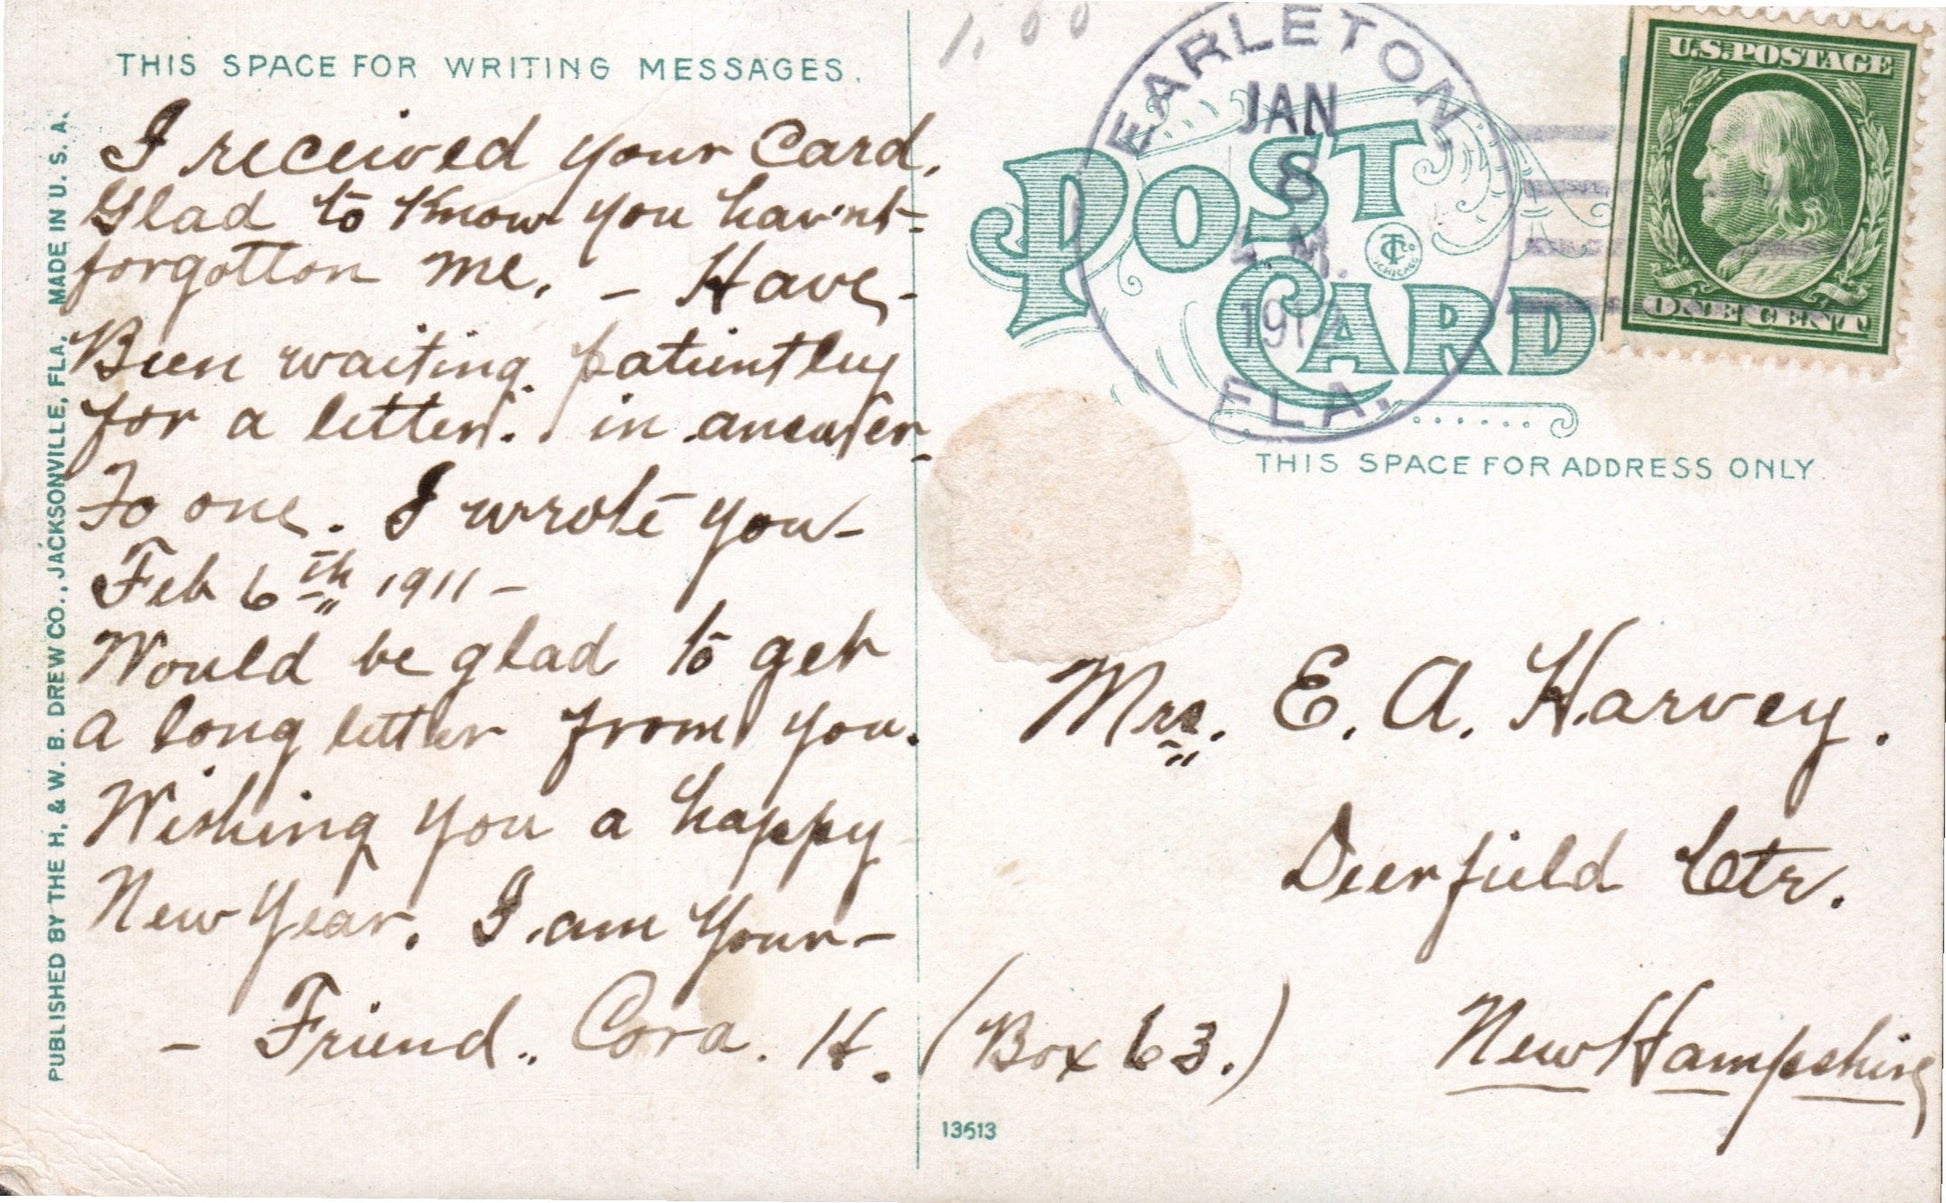 THIS SPACE FOR WRITING MESSAGES.
I received your Card.
Glad to Know you hav'nt-
forgotton me. - Have-
Been waiting patiently
for a letter. in answer
To one. I wrote you-
Feb 6th 1911-
Would be glad to get
a long letter from you.
Wishing you a happy
New Year. I am your-
- Friend. Cora. H.
PUBLISHED BY THE H. & W. B. DREW CO., JACKSONVILLE, FLA. MADE IN U. S. A.
1.00
EARLETON,
JAN
8
M.
1912
FLA.
U.S. POSTAGE
ONE CENT
POST
CARD
CHICAGO
THIS SPACE FOR ADDRESS ONLY.
Mrs. E. A. Harvey.
Deerfield Ctr.
New Hampshire
(Box 63.)
13613